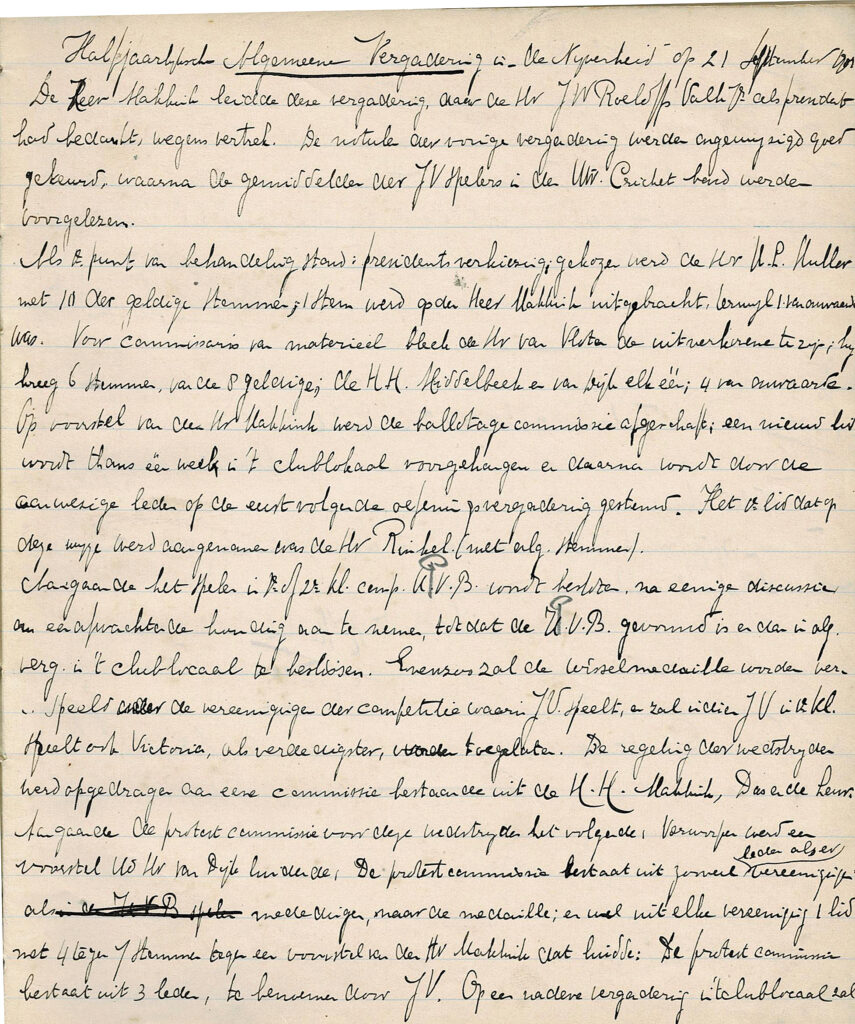 Halfjaarlijksche Algemeene Vergadering in de Nyverheid op 21 September
De Heer Makkink leidde deze vergadering, daar de Hr J W Roeloffs Valk Jr als president
had bedankt, wegens vertrek. De notule der vorige vergadering werden ongewyzigd goed
gekeurd, waarna de gemiddelden der JV spelers in den Utr. Cricket bond werden
voorgelezen.
Als 1e punt van behandeling stond: presidentsverkiezing; gekozen werd de Hr H.P. Muller
met 10 der geldige stemmen; 1 stem werd op den Heer Makkink uitgebracht, terwyl 1 van onwaarde
was. Voor commissaris van materieel bleek de Hr van Vloten de uitverkorene te zyn; hy
kreeg 6 stemmen, van de 8 geldige; de H.H. Middelbeek en van Dijk elk één; 4 van onwaarde.
Op voorstel van den Hr Makkink werd de ballotage commissie afgeschaft; een nieuwd lid
wordt thans één week in 't clublokaal voorgehangen en daarna wordt door de
aanwezige leden op de eerst volgende oefeningsvergadering gestemd. Het 1e lid dat op
deze wyze werd aangenomen was de Hr Rinkel (met alg. stemmen).
Aangaande het spelen in 1e of 2e kl. comp. G.V.B. wordt besloten, na eenige discussien
om een afwachtende houding aan te nemen, totdat de G.V.B. gevormd is en dan in alg.
verg. in 't clublocaal te beslissen. Evenzoo zal de wisselmedaille worden ver-
speeld onder de vereenigingen der competitie waarin J.V. speelt, en zal indien JV in 1e kl.
speelt ook Victoria, als verdedigster, worden toegelaten. De regeling der wedstryden
werd opgedragen aan eene commissie bestaande uit de H.H. Makkink, Das en de Leur.
Aangaande de protest commissie voor deze wedstryden het volgende; Verworpen werd een
leden als er
voorstel v/d Hr van Dijk luidende; De protestcommissie bestaat uit zooveel vereenigingen
als in de U V B spelen mededingen, naar de medaille; en wel uit elke vereeniging 1 lid
met 4 tegen 7 stemmen tegen een voorstel van den Hr Makkink dat luidde: De protest commissie
bestaat uit 3 leden, te benoemen door JV. Op een nadere vergadering in 't clublocaal zal